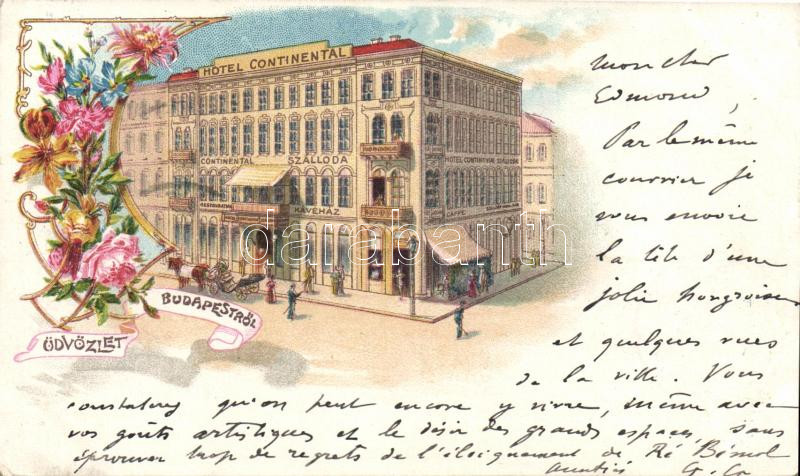 HOTEL CONTINENTAL
CONTINENTAL SZÁLLODA
HOTEL CONTINENTAL SZÁLLODA
RESTAURATION
KÁVÉHÁZ
CAFFE
darabanth
ÜDVÖZLET
BUDAPESTRŐL
Mon cher
Edmond,
Par le même
courrier je
vous envoie
la tête d'une
jolie hongroise
et quelques vues
de la ville. Vous
constaterez qu'on peut encore y vivre, même avec
vos goûts artistiques et le désir des grands espaces, sans
éprouver trop de regrets de l'éloignement de Ré Bémol